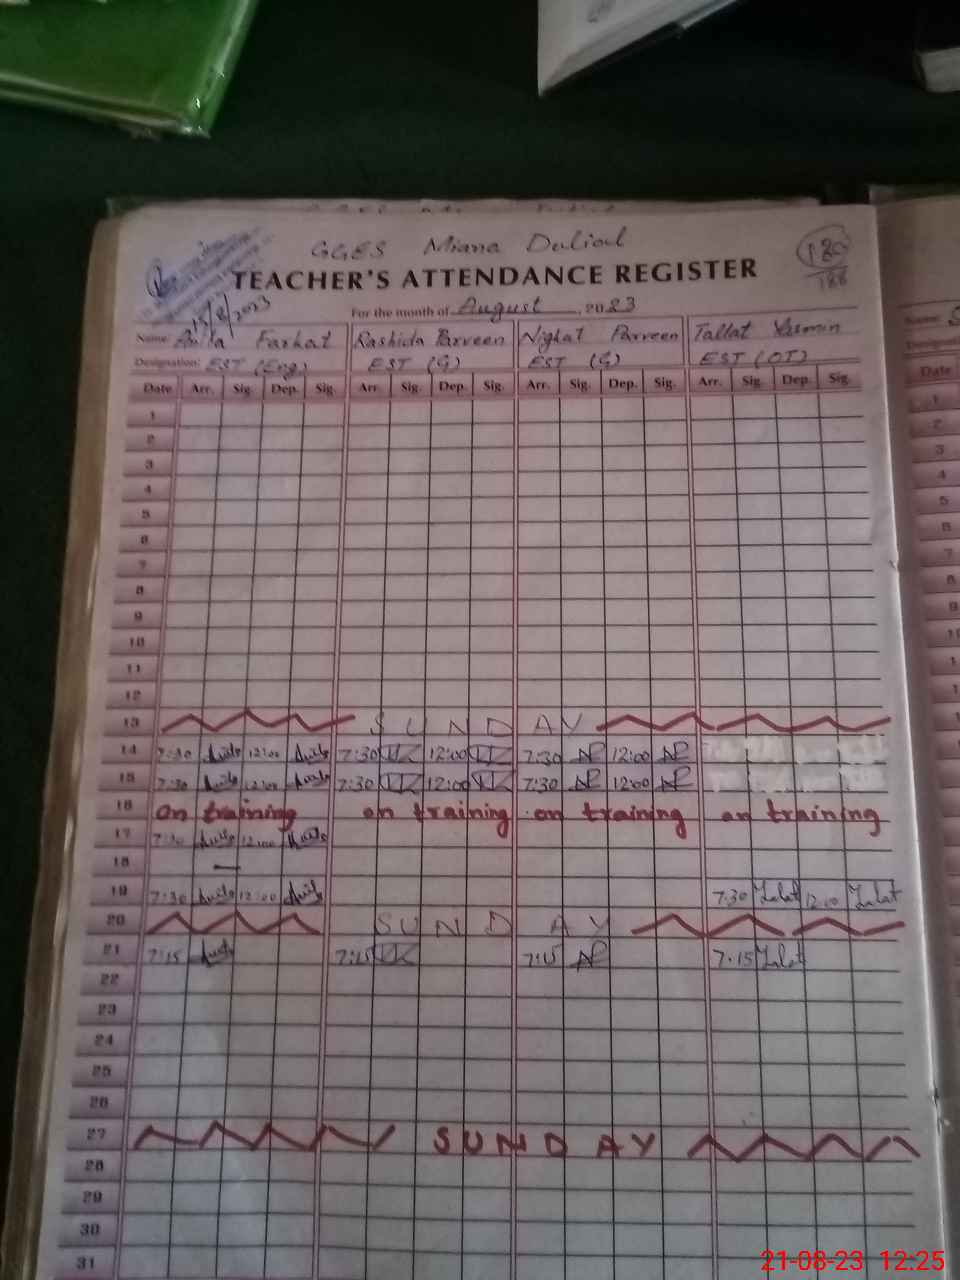 GGES Miana
180
186
TEACHER'S ATTENDANCE REGISTER
/8/2023
For the month of August, 2023
Name: Farhat Rashida Parveen Nighat Parveen Tallat Yasmin
Designation: EST (Eng) EST (G) EST (G) EST (OT)
Date Arr. Sig. Dep. Sig. Arr. Sig. Dep. Sig. Arr. Sig. Dep. Sig. Arr. Sig. Dep. Sig.
1
2
3
4
5
6
7
8
9
10
11
12
13 SUNDAY
14 7:30 12:00 7:30 12:00 7:30 12:00
15 7:30 12:00 7:30 12:00 7:30 12:00
16 on training on training on training on training
17 7:30 12:00
18 —
19 7:30 12:00 7:30 Talat 12:00 Talat
20 SUNDAY
21 7:15 7:15 7:15 7:15 Talat
22
23
24
25
26
27 SUNDAY
28
29
30
31
Name: S
Date
1
2
3
4
5
6
7
8
9
21-08-23 12:25